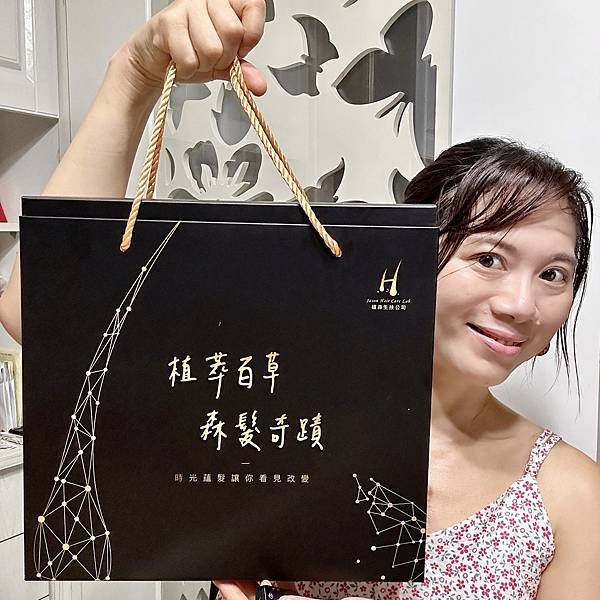 H
Jason Hair Care Lab
植森生技公司
植萃百草
森髮奇蹟
時光蘊髮讓你看見改變